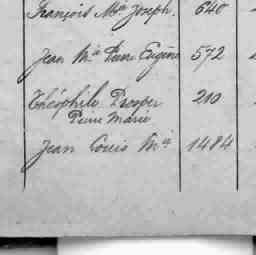 François Mie Joseph. 640
Jean Mie Pierre Eugène 572
Théophile Prosper 210
Pierre Marie
Jean Louis Mie 1484